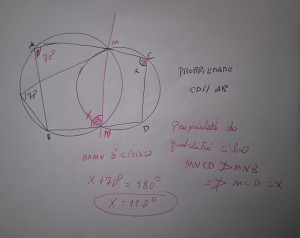 A
M
C
70°
x
PROPRIEDADE
CD // AB
x
B
N
D
Propriedade do
quadrilátero
BAMN É CÍCLICO
MNCD
MNB
X + 70° = 180°
⇒ MCD = X
X = 110°